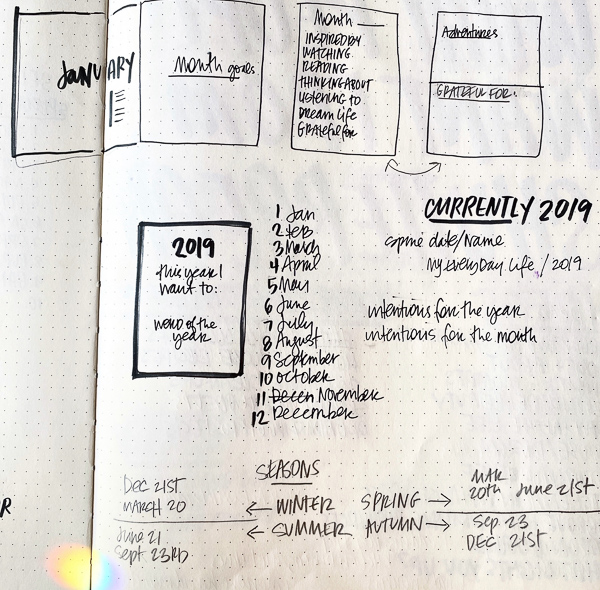 JANUARY
Month goals
Month
INSPIRED BY
WATCHING
READING
THINKING ABOUT
Listening to
Dream Life
Grateful for
Adventures
GRATEFUL FOR:
2019
this year I
want to:
word of the
year
1 Jan
2 Feb
3 March
4 April
5 May
6 June
7 July
8 August
9 September
10 October
11 Decem November
12 December
CURRENTLY 2019
spine date/Name
My EVERYDAY Life / 2019
intentions for the year
intentions for the month
SEASONS
Dec 21ST
MARCH 20
← WINTER
SPRING →
MAR
20th June 21st
June 21
Sept 23RD
← SUMMER
AUTUMN →
Sep 23
DEC 21ST